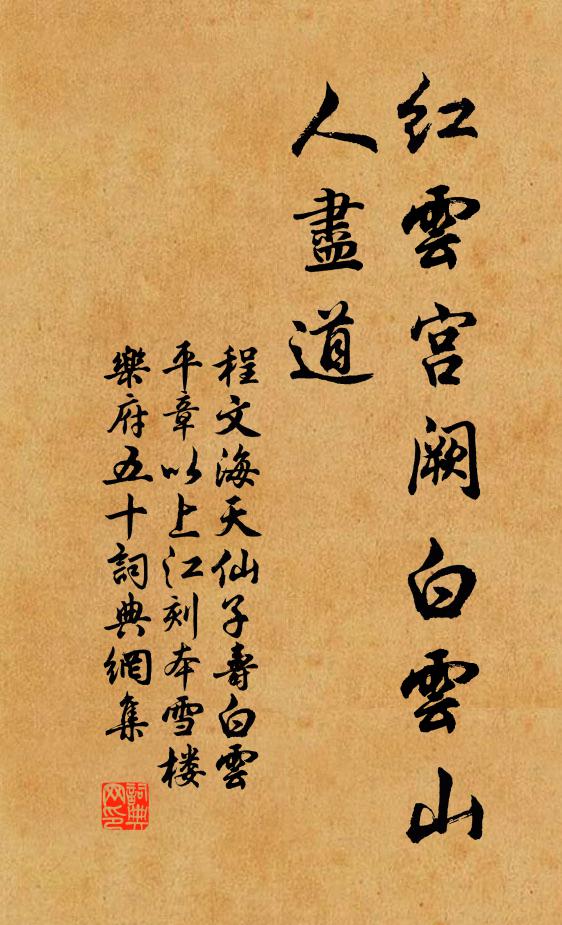 红雲宫阙白雲山
人盡道
程文海天仙子壽白雲
平章以上江刻本雪楼
樂府五十詞典網集
詞典网印